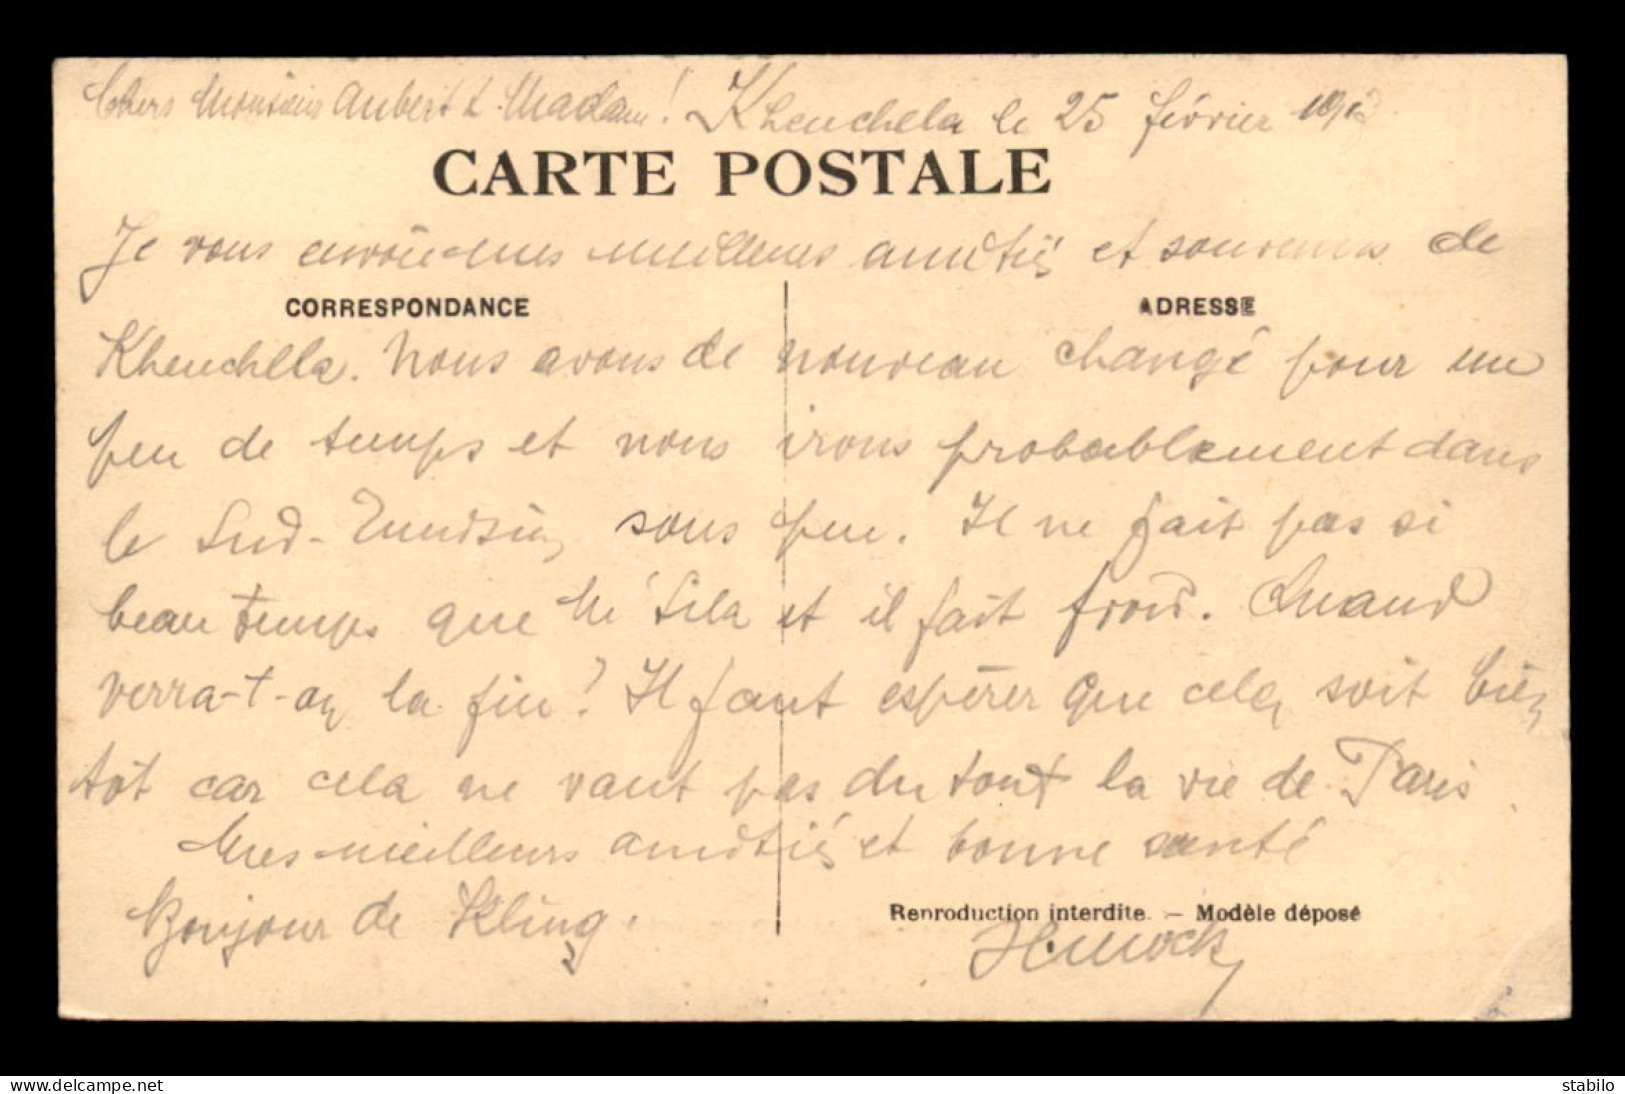 Chers Monsieur Aubert & Madam! Khenchela le 25 février
CARTE POSTALE
Je vous envoie mes meilleures amitiés et souvenirs de
CORRESPONDANCE
ADRESSE
Khenchela. Nous avons de nouveau changé pour un
peu de temps et nous irons probablement dans
le Sud-Tunisien sous peu. Il ne fait pas si
beau temps que M'Sila et il fait froid. Quand
verra-t-on la fin? Il faut espérer que cela soit bien
tôt car cela ne vaut pas du tout la vie de Paris
Mes meilleurs amitiés et bonne santé
Bonjour de Kling.
Reproduction interdite. — Modèle déposé
delcampe.net
stabilo